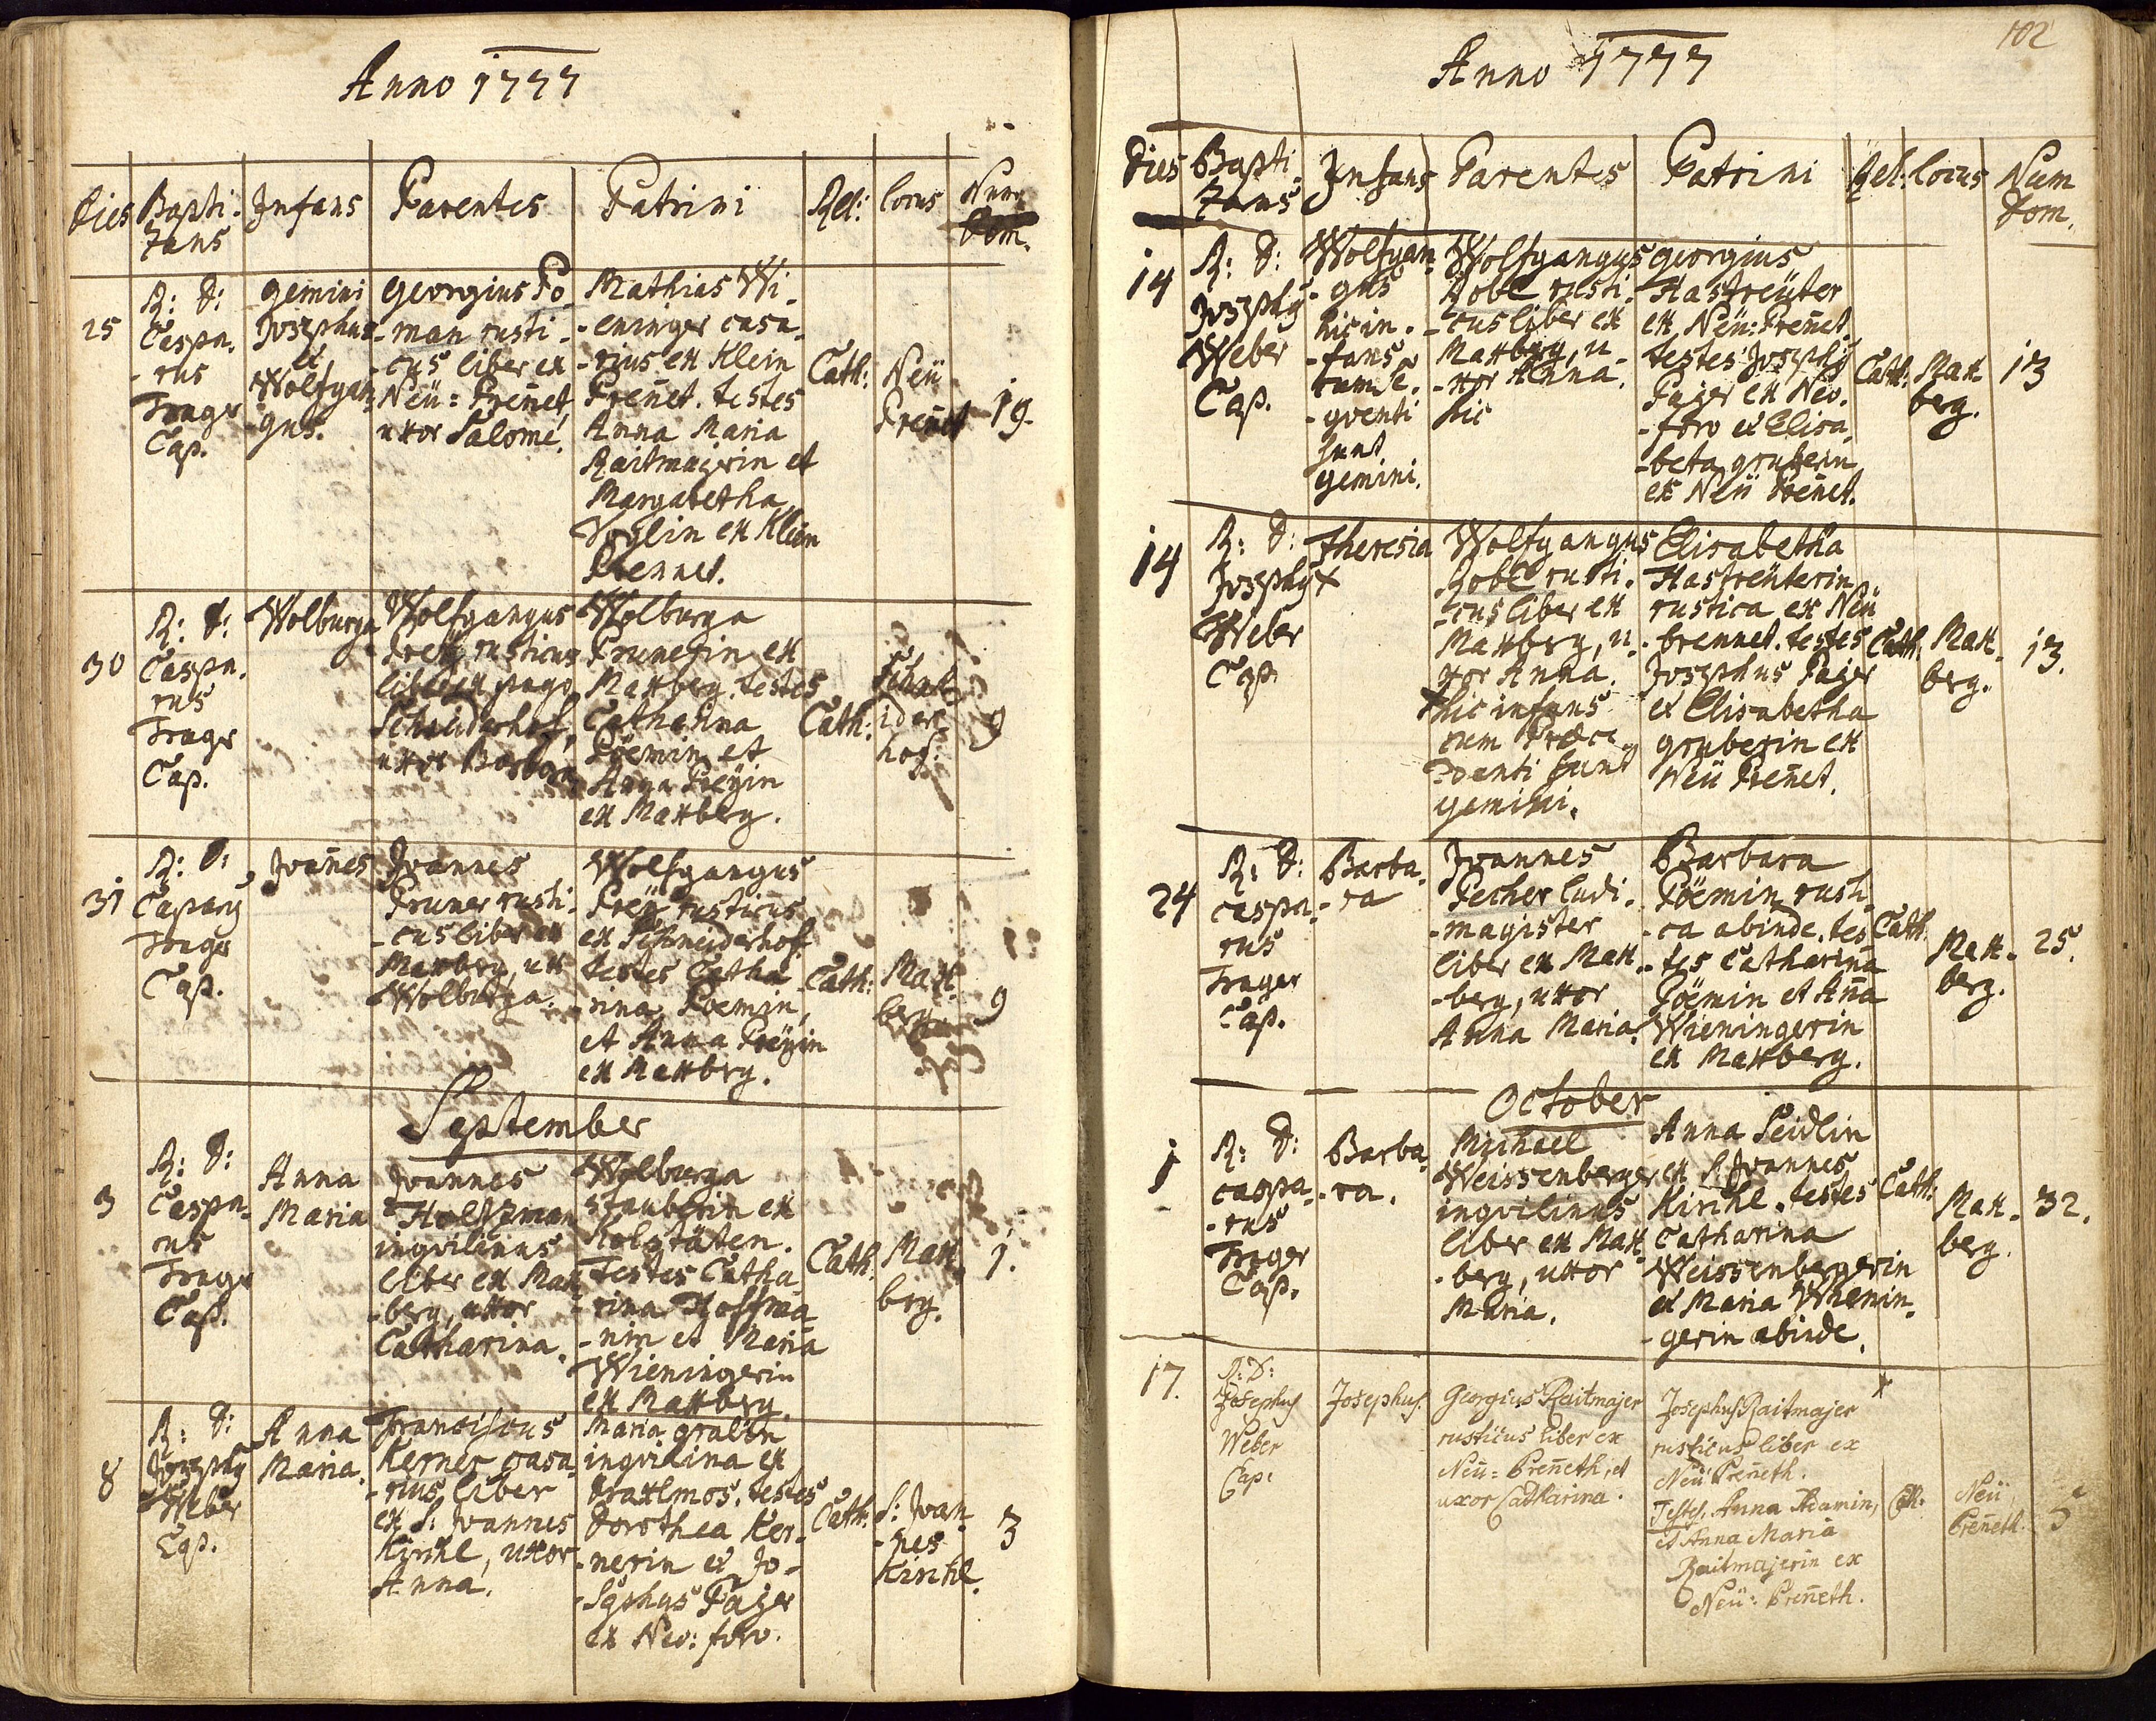 Anno 1777
Dies
Bapti-
zans
Infans
Parentes
Patrini
Rel:
locus
Num
Dom.
25
R: D:
Caspa-
-rus
Trager
Cap.
gemini
Josephus
et
Wolfgan-
-gus.
georgius Pö-
-man rusti-
-cus liber ex
Neü=Preñet,
uxor Salome.
Mathias Wi-
-eninger casa-
-rius ex Klein
Preñet. testes
Anna Maria
Raitmajerin et
Margabetha
Voglin ex Klein
Prennet.
Cath:
Neü
Preñet
19.
30
R: D:
Caspa-
rus
Trager
Cap.
Wolburga
Wolfgangus
Preÿ rusticus
liber ex pago
Schneiderhof,
uxor Barbara
Wolburga
Prunerin ex
Maxberg. testes
Catharina
Pöemin et
Anna Preÿin
ex Maxberg.
Cath:
Schne-
ider
hof.
9
31
R: D:
Caparÿ
Trager
Cap.
Joañes
Joannes
Pruner rusti-
-cus liber ex
Maxberg, ux
Wolburga.
Wolfgangus
Preÿ rusticus
ex Schneiderhof
testes Catha-
-rina Poemin,
et Anna Preÿin
ex Maxbrg.
Cath:
Max-
berg
9
September
3
R: D:
Caspa-
rus
Trager
Cap.
Anna
Maria
Joannes
Holtzman
inqvilinus
liber ex Max
-berg, uxor
Catharina.
Wolburga
stauberin ex
Kolstäten.
Testes Catha
-rina Hoffma-
-nin et Maria
Wieningerin
ex Maxberg.
Cath:
Max-
brg.
1.
8
R: D:
Josephÿ
Weber
Cap.
Anna
Maria.
Franciscus
Kerner casa-
-rius liber
ex S: Joannes
Kirchl, uxor
Anna.
Maria
inqvilina ex
testes
Dorothea Ker-
-nerin et Jo-
-sephus Pajer
ex Neo: foro.
Cath:
S: Joan-
-nes
Kirchl.
3
102
Anno 1777
Dies
Bapti-
zans
Infans
Parentes
Patrini
Rel:
locus
Num
Dom.
14
R: D:
Josephÿ
Weber
Cap.
Wolfgan-
-gus
hic in-
-fans
cum se-
-qventi
sunt
gemini.
Wolfgangus
Robl rusti-
-cus liber ex
Maxberg, u-
-xor Anna.
hic
georgius
Hastreüter
ex Neü:Preñet.
testes Josephÿ
Pajer ex Neo-
-foro et Elisa-
-beta gruberin
ex Neü Preñet.
Cath:
Max
berg.
13
14
R: D:
Josephÿ
Weber
Cap.
Theresia
x
Wolfgangus
Robl rusti-
-cus liber ex
Maxberg, u-
xor Anna.
x hic infans
cum Præce-
denti sunt
gemini.
Elisabetha
Hastreüterin
rustica ex Neü
-brennet. testes
Josephus Pajer
et Elisabetha
gruberin ex
Neü Preñet.
Cath.
Max-
berg.
13.
24
R: D:
caspa-
rus
Trager
Cap.
Barba-
-ra
Joannes
Pecher ludi-
-magister
liber ex Max-
-berg, uxor
Anna Maria.
Barbara
Pöemin rusti-
-ca abinde. tes-
-tes Catharina
Pöemin et Aña
Wieningerin
ex Maxberg.
Cath:
Max-
berg.
25.
October
1
R: D:
caspa-
-rus
Trager
Cap.
Barba-
-ra.
Michael
Weissenberger
inqvilinus
liber ex Max
-berg, uxor
Maria.
Anna Seidlin
ex S Joannes
Kirchl. testes
Catharina
Weissenbergerin
et Maria Wienin-
-gerin abinde.
Cath:
Max-
berg.
32.
17.
R: D:
Josephus
Weber
Cap:
Josephus.
Georgius Raitmajer
rusticus liber ex
Neü=Preñeth, et
uxor Catharina.
Josephus Raitmajer
rusticus liber ex
Neü Preñeth.
Testes. Anna Adamin,
et Anna Maria
Raitmajerin ex
Neü: Preñeth.
x
Cath.
Neü
Preñeth.
5